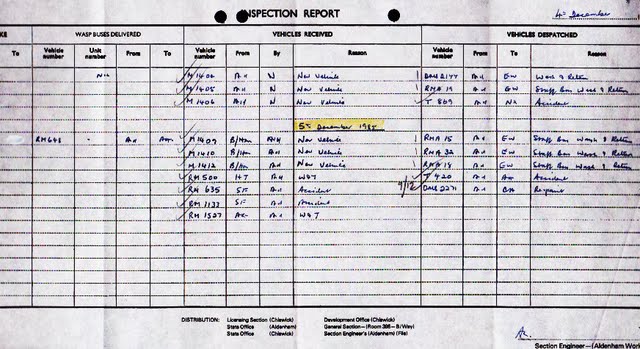 INSPECTION REPORT 4th December
KE WASP BUSES DELIVERED VEHICLES RECEIVED VEHICLES DESPATCHED
To Vehicle number Unit number From To Vehicle number From By Reason Vehicle number From To Reason
Nil M 1404 AH N New Vehicle DMS 2177 AH EW Wash & Return
M 1405 AH N New Vehicle RMA 19 AH EW Staff Bus Wash & Return
M 1406 AH N New Vehicle T 869 AH NX Accident
5th December 1985
RM 648 - AH M 1409 B/Ham New Vehicle RMA 15 AH EW Staff Bus Wash & Return
M 1410 B/Ham AH New Vehicle RMA 32 AH EW Staff Bus Wash & Return
M 1412 B/Ham AH New Vehicle RMA 14 AH EW Staff Bus Wash & Return
RM 500 HT AH W&T T 420 AH Accident
RM 635 SF AH Accident 4/12 DMS 2271 AH Repaint
RM 1133 SF AH Accident
RM 1527 AH W&T
DISTRIBUTION: Licensing Section (Chiswick) Development Office (Chiswick)
Stats Office (Aldenham) General Section—(Room 395—B/Way)
Stats Office (Chiswick) Section Engineer's (Aldenham) (File)
Section Engineer—(Aldenham Wor